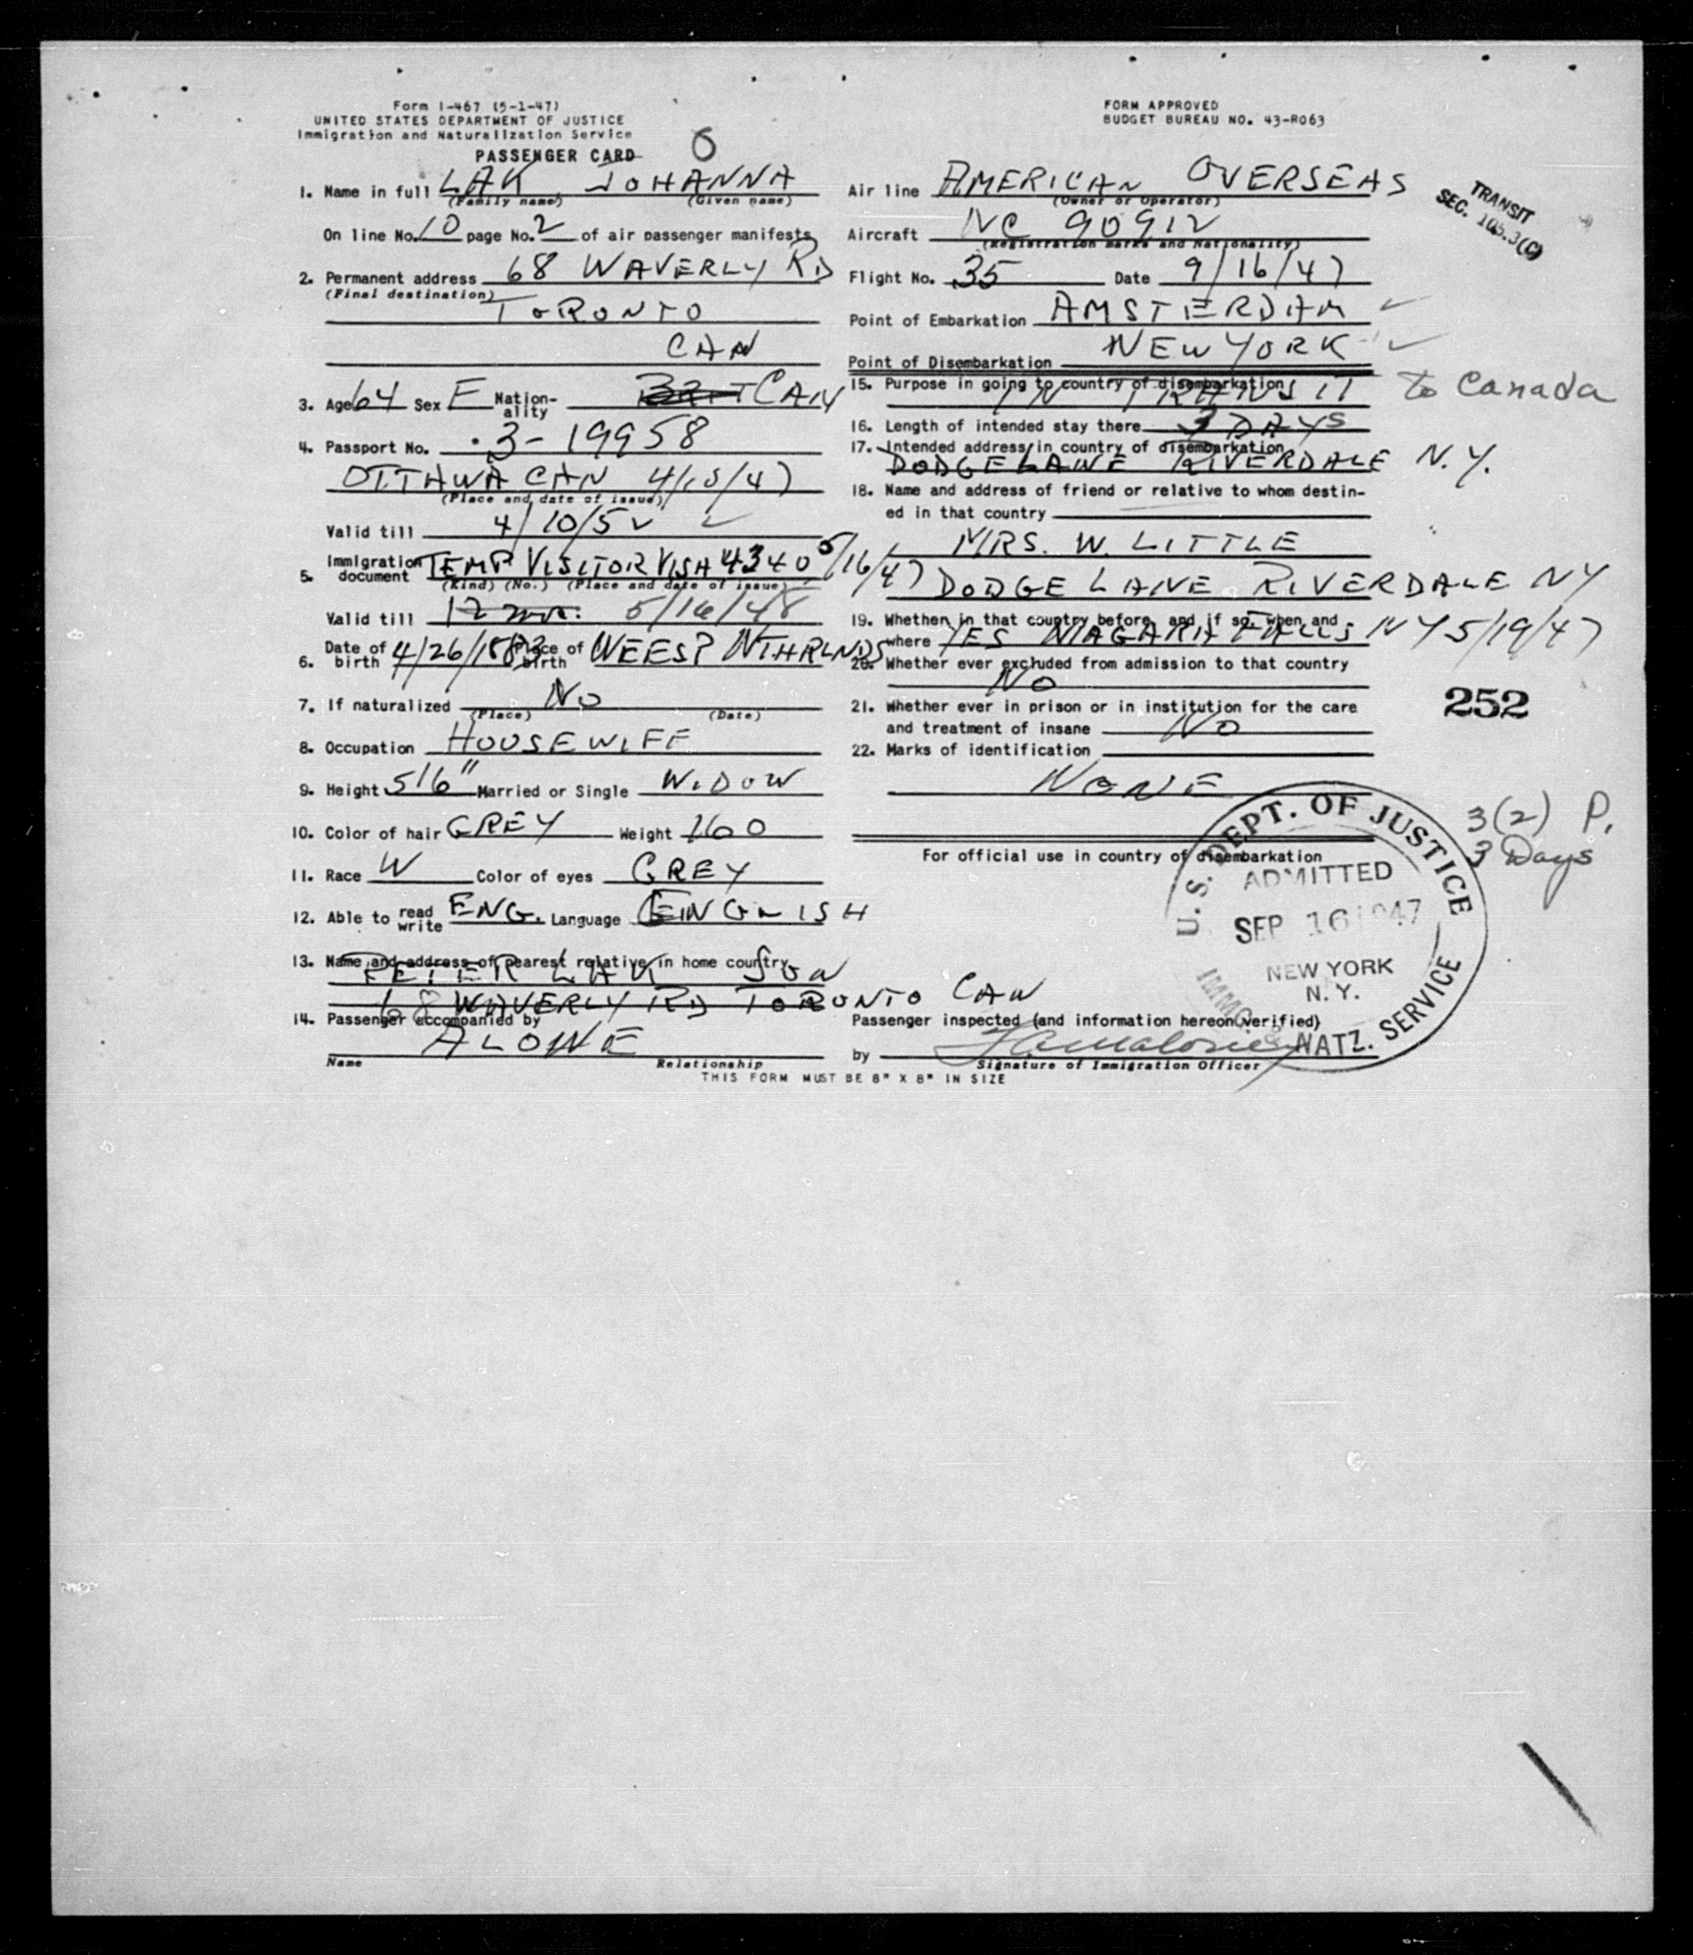 Form I-467 (5-1-47)
UNITED STATES DEPARTMENT OF JUSTICE
Immigration and Naturalization Service
PASSENGER CARD
FORM APPROVED
BUDGET BUREAU NO. 43-R063
1. Name in full LAK JOHANNA
(Family name) (Given name)
On line No. 10 page No. 2 of air passenger manifests
2. Permanent address 68 WAVERLY RD
(Final destination)
TORONTO
CAN
3. Age 64 Sex F Nation-ality BRIT CAN
4. Passport No. 3-19958
OTTAWA CAN 4/10/47
(Place and date of issue)
Valid till 4/10/52
5. Immigration document TEMP VISITOR VISA 4340 5/16/47
(Kind) (No.) (Place and date of issue)
Valid till 12 mo. 5/16/48
6. Date of birth 4/26/1883 Place of birth WEESP NTHRLNDS
7. If naturalized No
(Place) (Date)
8. Occupation HOUSEWIFE
9. Height 5'6" Married or Single WIDOW
10. Color of hair GREY Weight 160
11. Race W Color of eyes GREY
12. Able to read write ENG. Language ENGLISH
13. Name and address of nearest relative in home country
PETER LAK SON
68 WAVERLY RD TORONTO CAN
14. Passenger accompanied by
ALONE
Name Relationship
Air line AMERICAN OVERSEAS
(Owner or Operator)
TRANSIT
SEC. 105.3(C)
Aircraft NC 90912
(Registration marks and Nationality)
Flight No. 35 Date 9/16/47
Point of Embarkation AMSTERDAM
Point of Disembarkation NEW YORK
15. Purpose in going to country of disembarkation
IN TRANSIT to Canada
16. Length of intended stay there 3 DAYS
17. Intended address in country of disembarkation
DODGE LANE RIVERDALE N.Y.
18. Name and address of friend or relative to whom destin-
ed in that country
MRS. W. LITTLE
DODGE LANE RIVERDALE NY
19. Whether in that country before, and if so, when and
where YES NIAGARA FALLS NY 5/19/47
20. Whether ever excluded from admission to that country
NO
252
21. Whether ever in prison or in institution for the care
and treatment of insane NO
22. Marks of identification
NONE
3(2) P.
3 Days
For official use in country of disembarkation
U.S. DEPT. OF JUSTICE
ADMITTED
SEP 16 1947
NEW YORK
N. Y.
IMMG. & NATZ. SERVICE
Passenger inspected (and information hereon verified)
by
Signature of Immigration Officer
THIS FORM MUST BE 8" X 8" IN SIZE